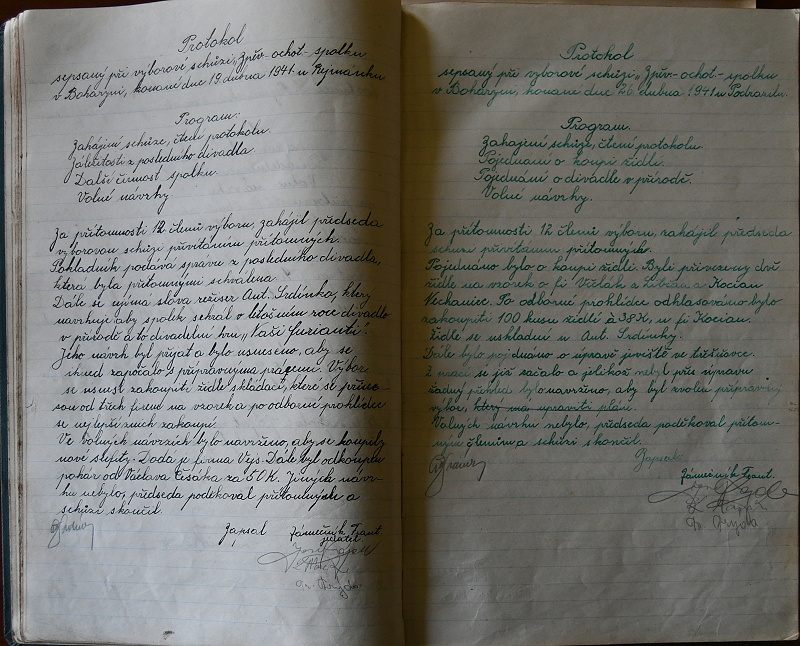 Protokol
sepsaný při výborové schůzi „Zpěv-ochot-spolku
v Boharyni, konané dne 19 dubna 1941 u Rejmánků
Program.
Zahájení schůze, čtení protokolu.
Záležitosti z posledního divadla
Další činnost spolku.
Volné návrhy
Za přítomnosti 12 členů výboru, zahájil předseda
výborovou schůzi přivítáním přítomných.
Pokladník podává správu z posledního divadla,
která byla přítomnými schválena.
Dále se ujímá slova režiser Ant. Srdínko, který
navrhuje aby spolek sehrál v letošním roce divadlo
v přírodě a to divadelní hru „Naši furianti".
Jeho návrh byl přijat a bylo usneseno, aby se
ihned započalo s přípravnýma pracemi. Výbor
se usnesl zakoupiti židle skládací, které se přine-
sou od třech firem na vzorek a po odborné prohlídce
se nejlepší z nich zakoupí.
Ve volných návrzích bylo navrženo, aby se koupily
nové šlejfy. Dodá je firma Vejs. Dále byl odkoupen
pohár od Václava Číšátka za 50 K. Jiných návr-
hů nebylo, předseda poděkoval přítomných a
schůzi skončil.
Zapsal Zámečník Frant.
jednatel.
Protokol
sepsaný při výborové schůzi „Zpěv-ochot-spolku
v Boharyni, konané dne 26 dubna 1941 u Podrazků.
Program.
Zahájení schůze, čtení protokolu.
Pojednání o koupi židlí.
Pojednání o divadle v přírodě.
Volné návrhy.
Za přítomnosti 12 členů výboru, zahájil předseda
schůzi přivítáním přítomných.
Pojednáno bylo o koupi židlí. Byli přivezeny dvě
židle na vzorek o fi Višlák z Libčan a Kocian
Nechanice. Po odborné prohlídce odhlasováno bylo
zakoupiti 100 kusů židlí à 38 K, u fi Kocian.
Židle se uskladní u Ant. Srdínky.
Dále bylo pojednáno o úpravě jeviště ve třešňovce.
Z prací se již začalo a jelikož nebyl při úpravě
žádný přehled bylo navrženo, aby byl zvolen přípravný
výbor, který má upraviti plán.
Volných návrhů nebylo, předseda poděkoval přítom-
ným členům a schůzi skončil.
Zapsal:
Zámečník Frant.